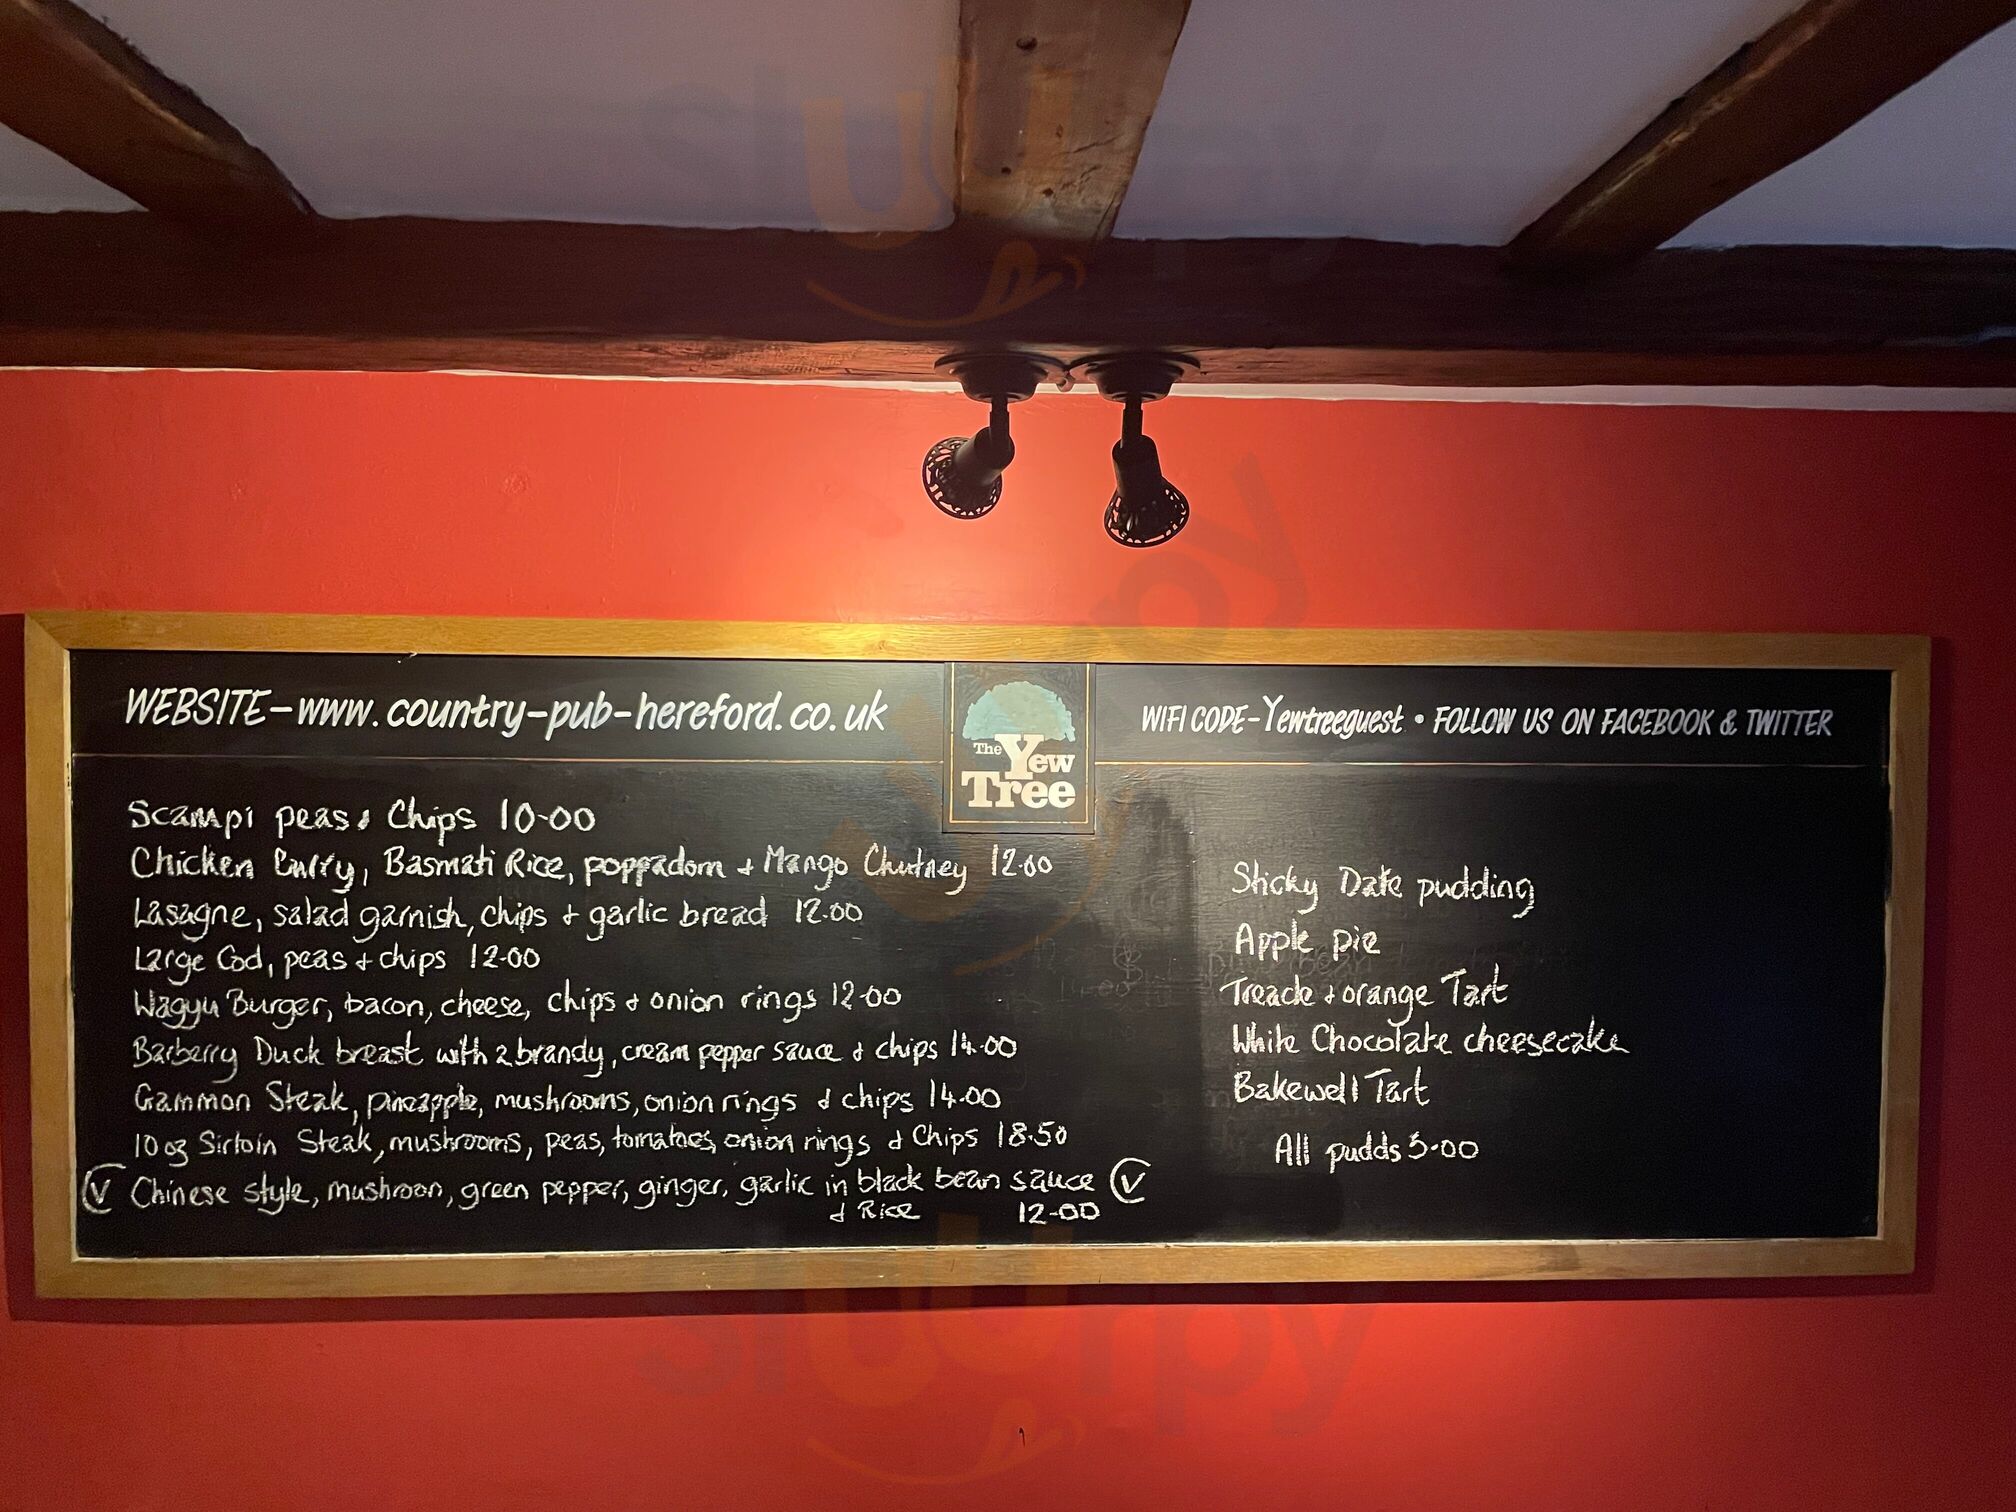 WEBSITE-www.country-pub-hereford.co.uk
The Yew
Tree
WIFI CODE-Yewtreeguest • FOLLOW US ON FACEBOOK & TWITTER
Scampi peas & Chips 10-00
Chicken Curry, Basmati Rice, poppadom + Mango Chutney 12.00
Lasagne, salad garnish, chips + garlic bread 12.00
Large Cod, peas + chips 12-00
Wagyu Burger, bacon, cheese, chips & onion rings 12-00
Barberry Duck breast with a brandy, cream pepper sauce & chips 14.00
Gammon Steak, pineapple, mushrooms, onion rings & chips 14.00
10oz Sirloin Steak, mushrooms, peas, tomatoes, onion rings & Chips 18.50
V Chinese style, mushroon, green pepper, ginger, garlic in black bean sauce V
& Rice 12-00
Sticky Date pudding
Apple pie
Treacle & orange Tart
White Chocolate cheesecake
Bakewell Tart
All pudds 5-00
sluurpy
sluurpy
sluurpy